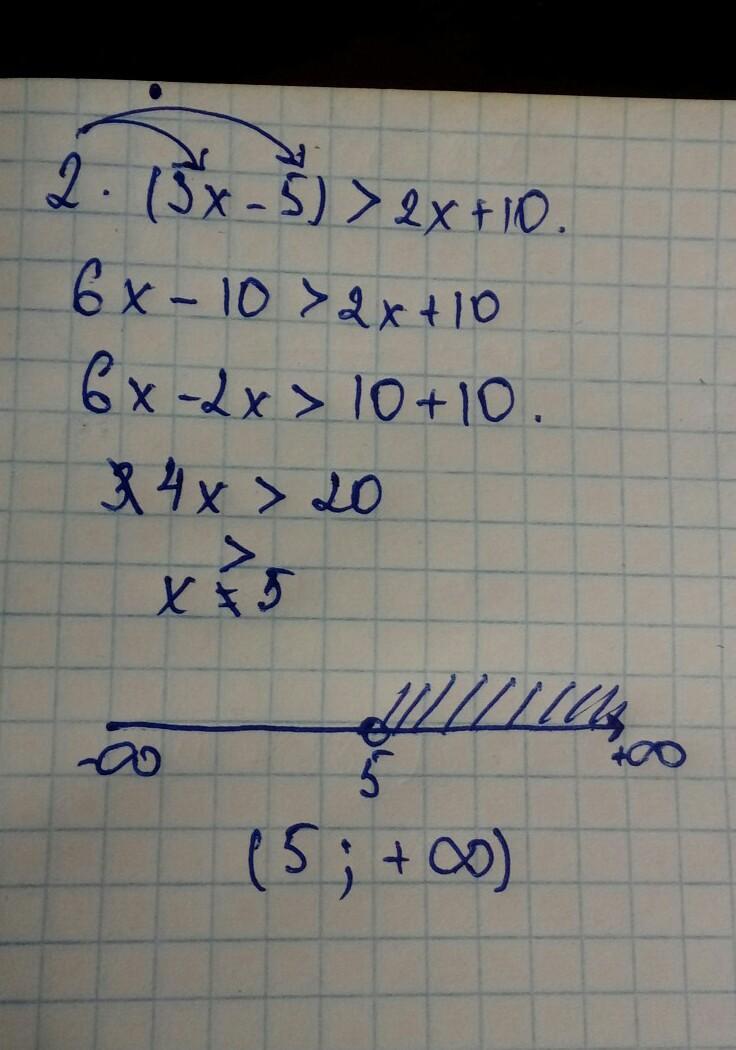 2 · (3x - 5) > 2x + 10.
6x - 10 > 2x + 10
6x - 2x > 10 + 10.
4x > 20
x > 5
-∞ 5 +∞
(5 ; + ∞)